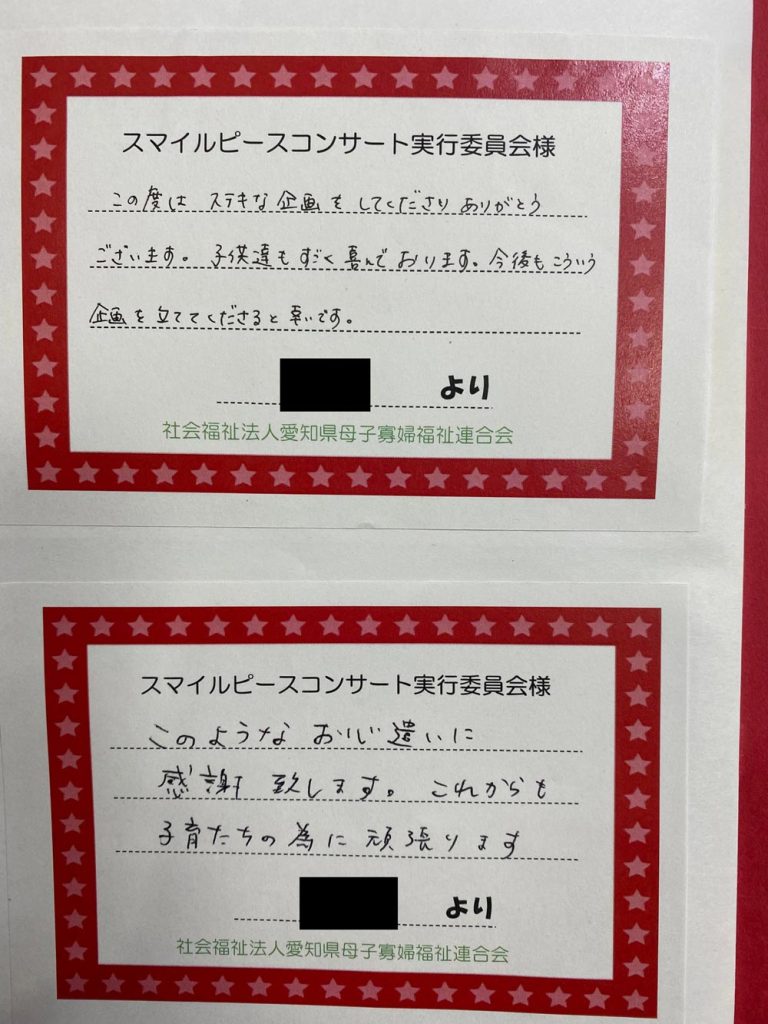 スマイルピースコンサート実行委員会様
この度は ステキな企画をしてくださりありがとう
ございます。子供達もすごく喜んでおります。今後もこういう
企画を立ててくださると幸いです。
より
社会福祉法人愛知県母子寡婦福祉連合会
スマイルピースコンサート実行委員会様
このような お心遣いに
感謝致します。これからも
子育たちの為に頑張ります
より
社会福祉法人愛知県母子寡婦福祉連合会